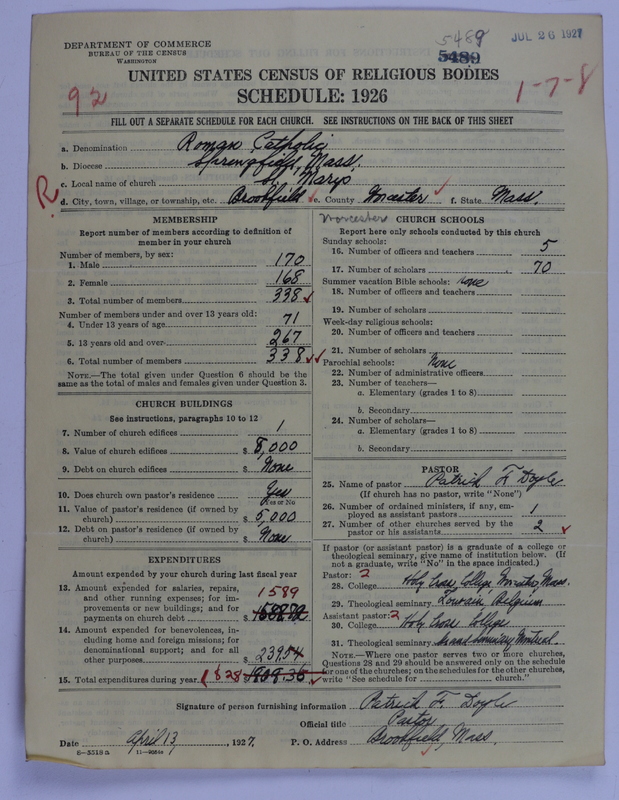 DEPARTMENT OF COMMERCE
BUREAU OF THE CENSUS
WASHINGTON
5489
5489
JUL 26 1927
92
1-7-8
UNITED STATES CENSUS OF RELIGIOUS BODIES
SCHEDULE: 1926
FILL OUT A SEPARATE SCHEDULE FOR EACH CHURCH. SEE INSTRUCTIONS ON THE BACK OF THIS SHEET
a. Denomination Roman Catholic
b. Diocese Springfield, Mass.
c. Local name of church St. Mary's
R
d. City, town, village, or township, etc. Brookfield e. County Worcester f. State Mass.
Worcester
MEMBERSHIP
Report number of members according to definition of
member in your church
Number of members, by sex:
1. Male 170
2. Female 168
3. Total number of members 338
Number of members under and over 13 years old:
4. Under 13 years of age 71
5. 13 years old and over 267
6. Total number of members 338
NOTE.—The total given under Question 6 should be the
same as the total of males and females given under Question 3.
CHURCH BUILDINGS
See instructions, paragraphs 10 to 12
7. Number of church edifices 1
8. Value of church edifices $ 8,000
9. Debt on church edifices $ None
10. Does church own pastor's residence Yes
Yes or No
11. Value of pastor's residence (if owned by
church) $ 5,000
12. Debt on pastor's residence (if owned by
church) $ None
EXPENDITURES
Amount expended by your church during last fiscal year
13. Amount expended for salaries, repairs,
and other running expenses; for im-
provements or new buildings; and for
payments on church debt $ 1589
14. Amount expended for benevolences, in-
cluding home and foreign missions; for
denominational support; and for all
other purposes $ 239.54
15. Total expenditures during year $ 1828
CHURCH SCHOOLS
Report here only schools conducted by this church
Sunday schools:
16. Number of officers and teachers 5
17. Number of scholars 70
Summer vacation Bible schools: None
18. Number of officers and teachers
19. Number of scholars
Week-day religious schools:
20. Number of officers and teachers
21. Number of scholars
Parochial schools: None
22. Number of administrative officers
23. Number of teachers—
a. Elementary (grades 1 to 8)
b. Secondary
24. Number of scholars—
a. Elementary (grades 1 to 8)
b. Secondary
PASTOR
25. Name of pastor Patrick F. Doyle
(If church has no pastor, write "None")
26. Number of ordained ministers, if any, em-
ployed as assistant pastors 1
27. Number of other churches served by the
pastor or his assistants 2
If pastor (or assistant pastor) is a graduate of a college or
theological seminary, give name of institution below. (If
not a graduate, write "No" in the space indicated.)
Pastor: 2
28. College Holy Cross College, Worcester, Mass.
29. Theological seminary Louvain, Belgium
Assistant pastor: 2
30. College Holy Cross College
31. Theological seminary Grand Seminary Montreal
NOTE.—Where one pastor serves two or more churches,
Questions 28 and 29 should be answered only on the schedule
for one of the churches; on the schedules for the other churches,
write "See schedule for church."
Signature of person furnishing information Patrick F. Doyle
Official title Pastor
Date April 13, 1927. P. O. Address Brookfield, Mass.